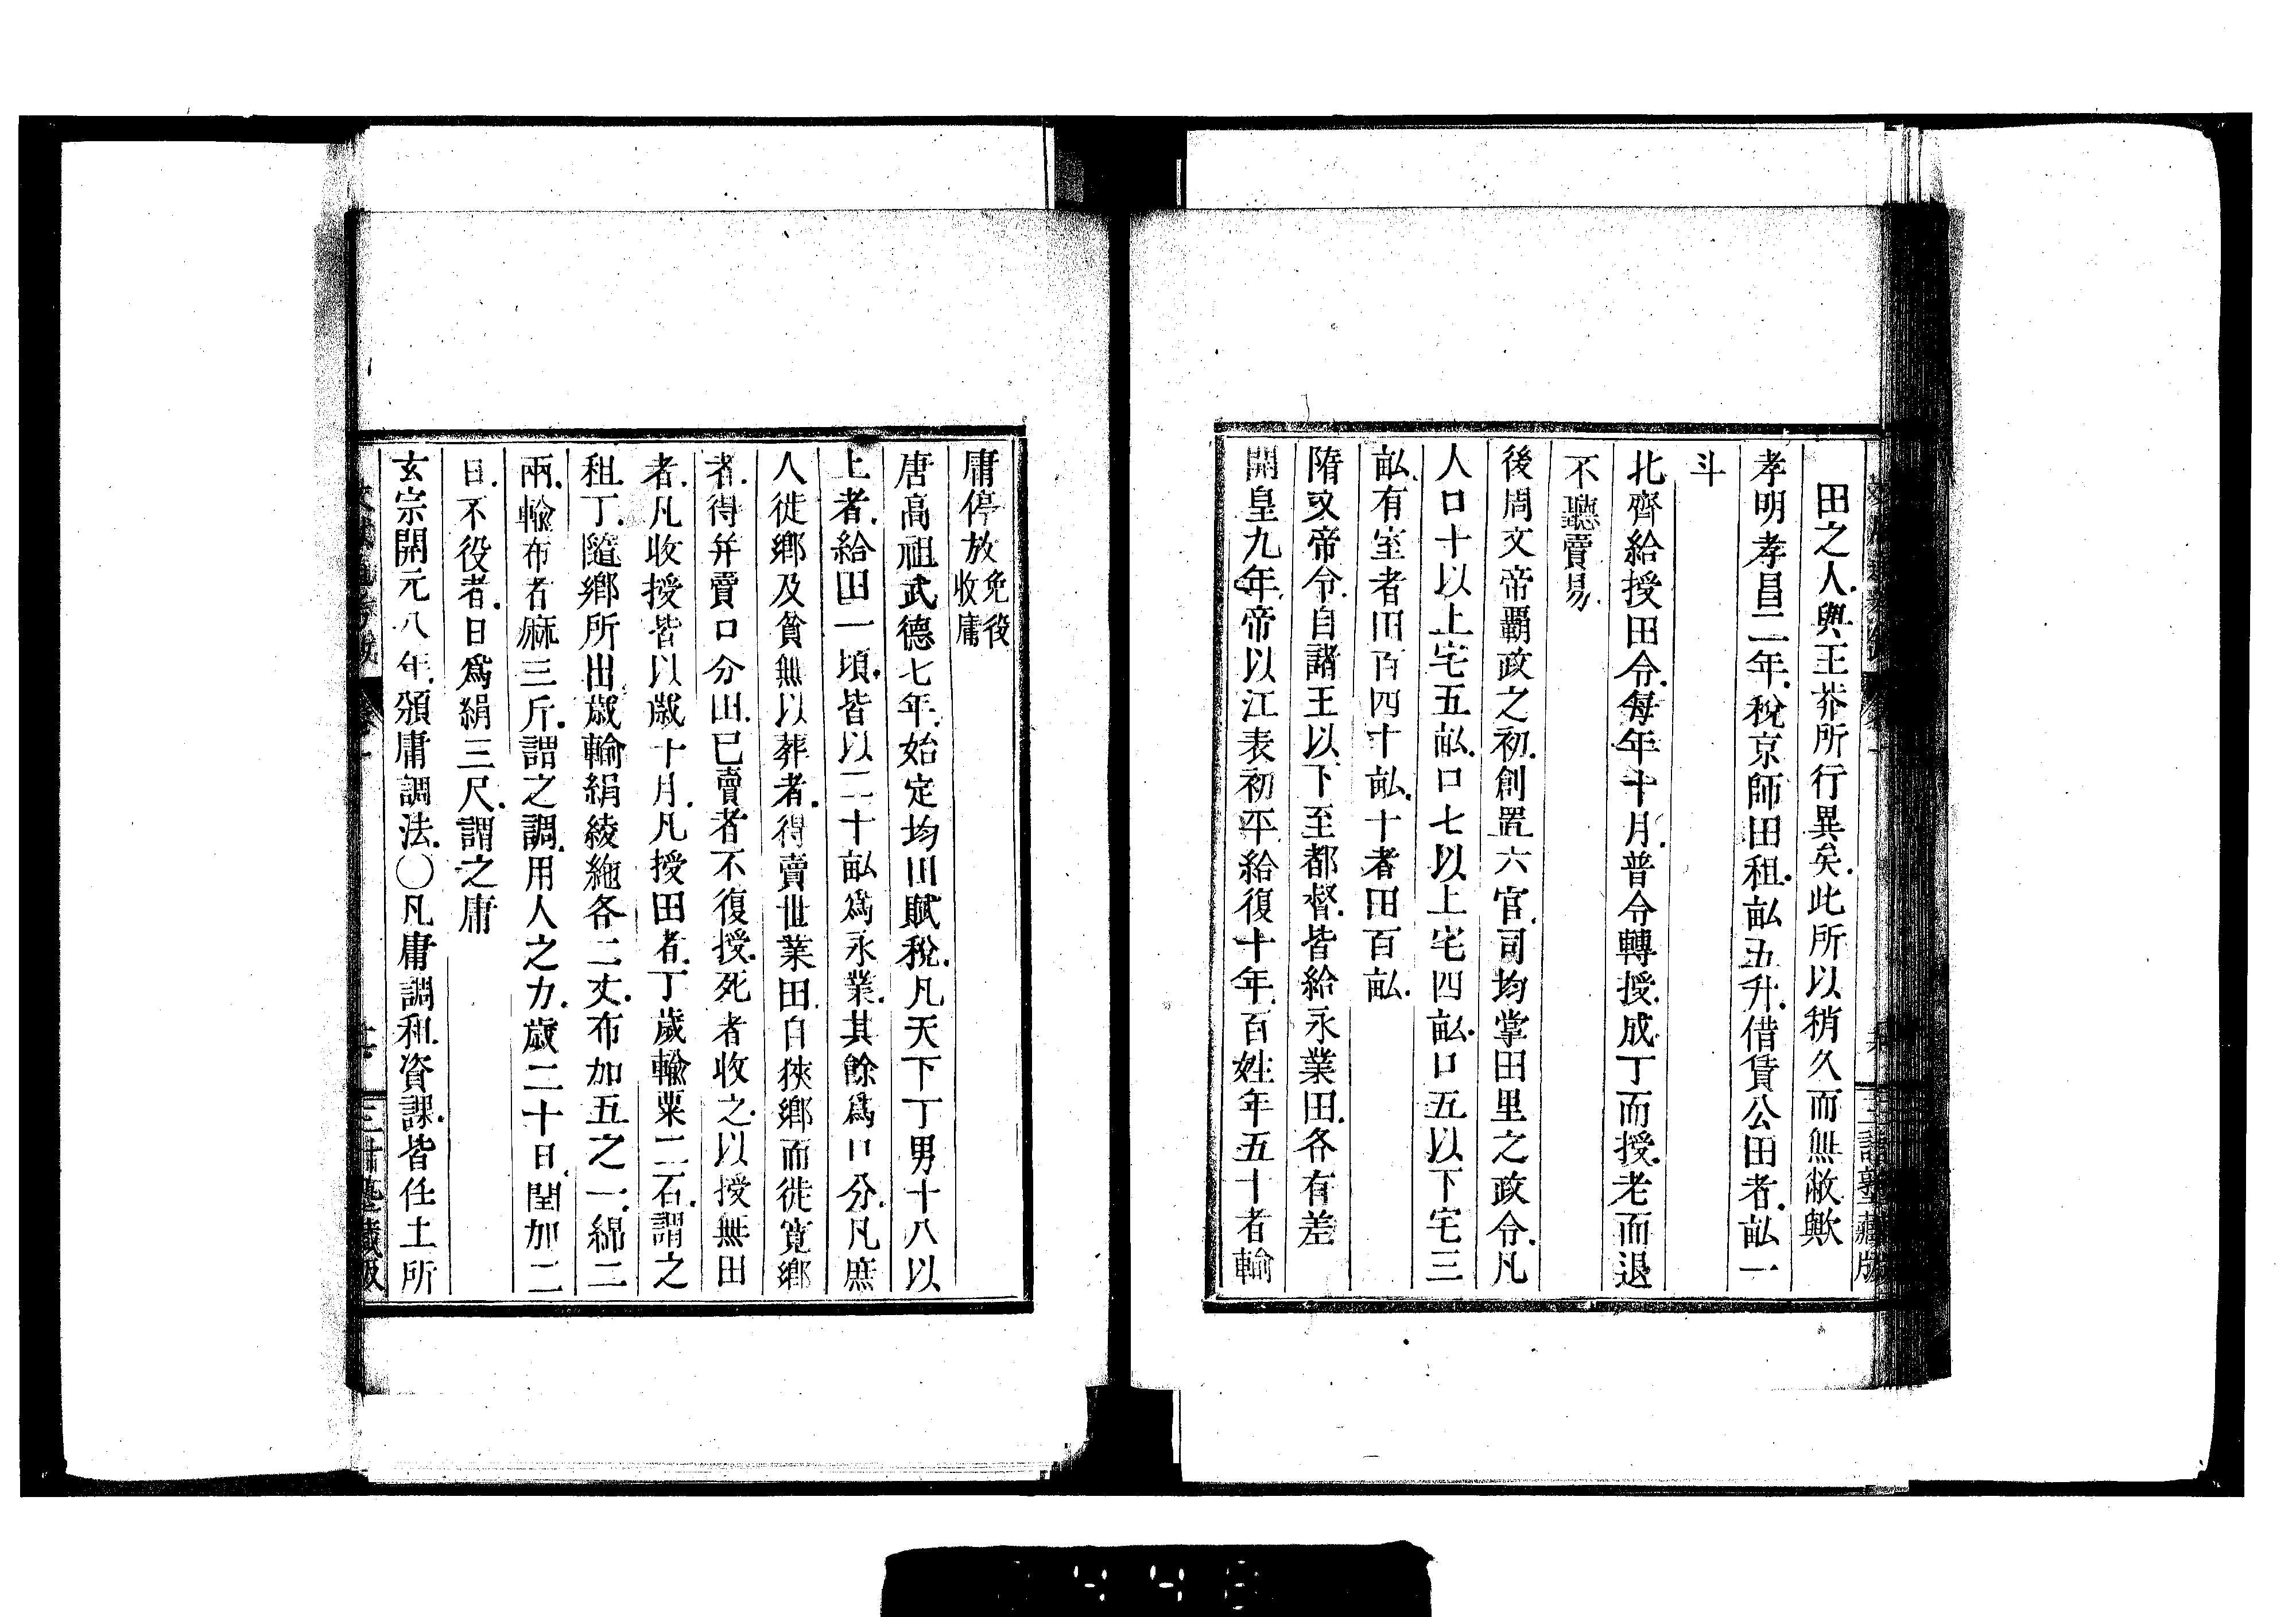 田之人與王莽所行異矣此所以稍久而無敝歟
孝明孝昌二年稅京師田租畝五升借賃公田者畝一
斗
北齊給授田令每年十月普令轉授成丁而授老而退
不聽賣易
後周文帝覇政之初創置六官司均掌田里之政令凡
人口十以上宅五畝口七以上宅四畝口五以下宅三
畝有室者田百四十畝十者田百畝
隋文帝令自諸王以下至都督皆給永業田各有差
開皇九年帝以江表初平給復十年百姓年五十者輸
庸停放免役收庸
唐高祖武德七年始定均田賦稅凡天下丁男十八以
上者給田一頃皆以二十畝爲永業其餘爲口分凡庶
人徙鄉及貧無以葬者得賣世業田自狹鄉而徙寛鄉
者得并賣口分田已賣者不復授死者收之以授無田
者凡收授皆以歲十月凡授田者丁歲輸粟二石謂之
租丁隨鄉所出歲輸絹綾絁各二丈布加五之一綿二
兩輸布者麻三斤謂之調用人之力歲二十日閏加二
日不役者日爲絹三尺謂之庸
玄宗開元八年頒庸調法○凡庸調和資課皆任土所
三
藏版